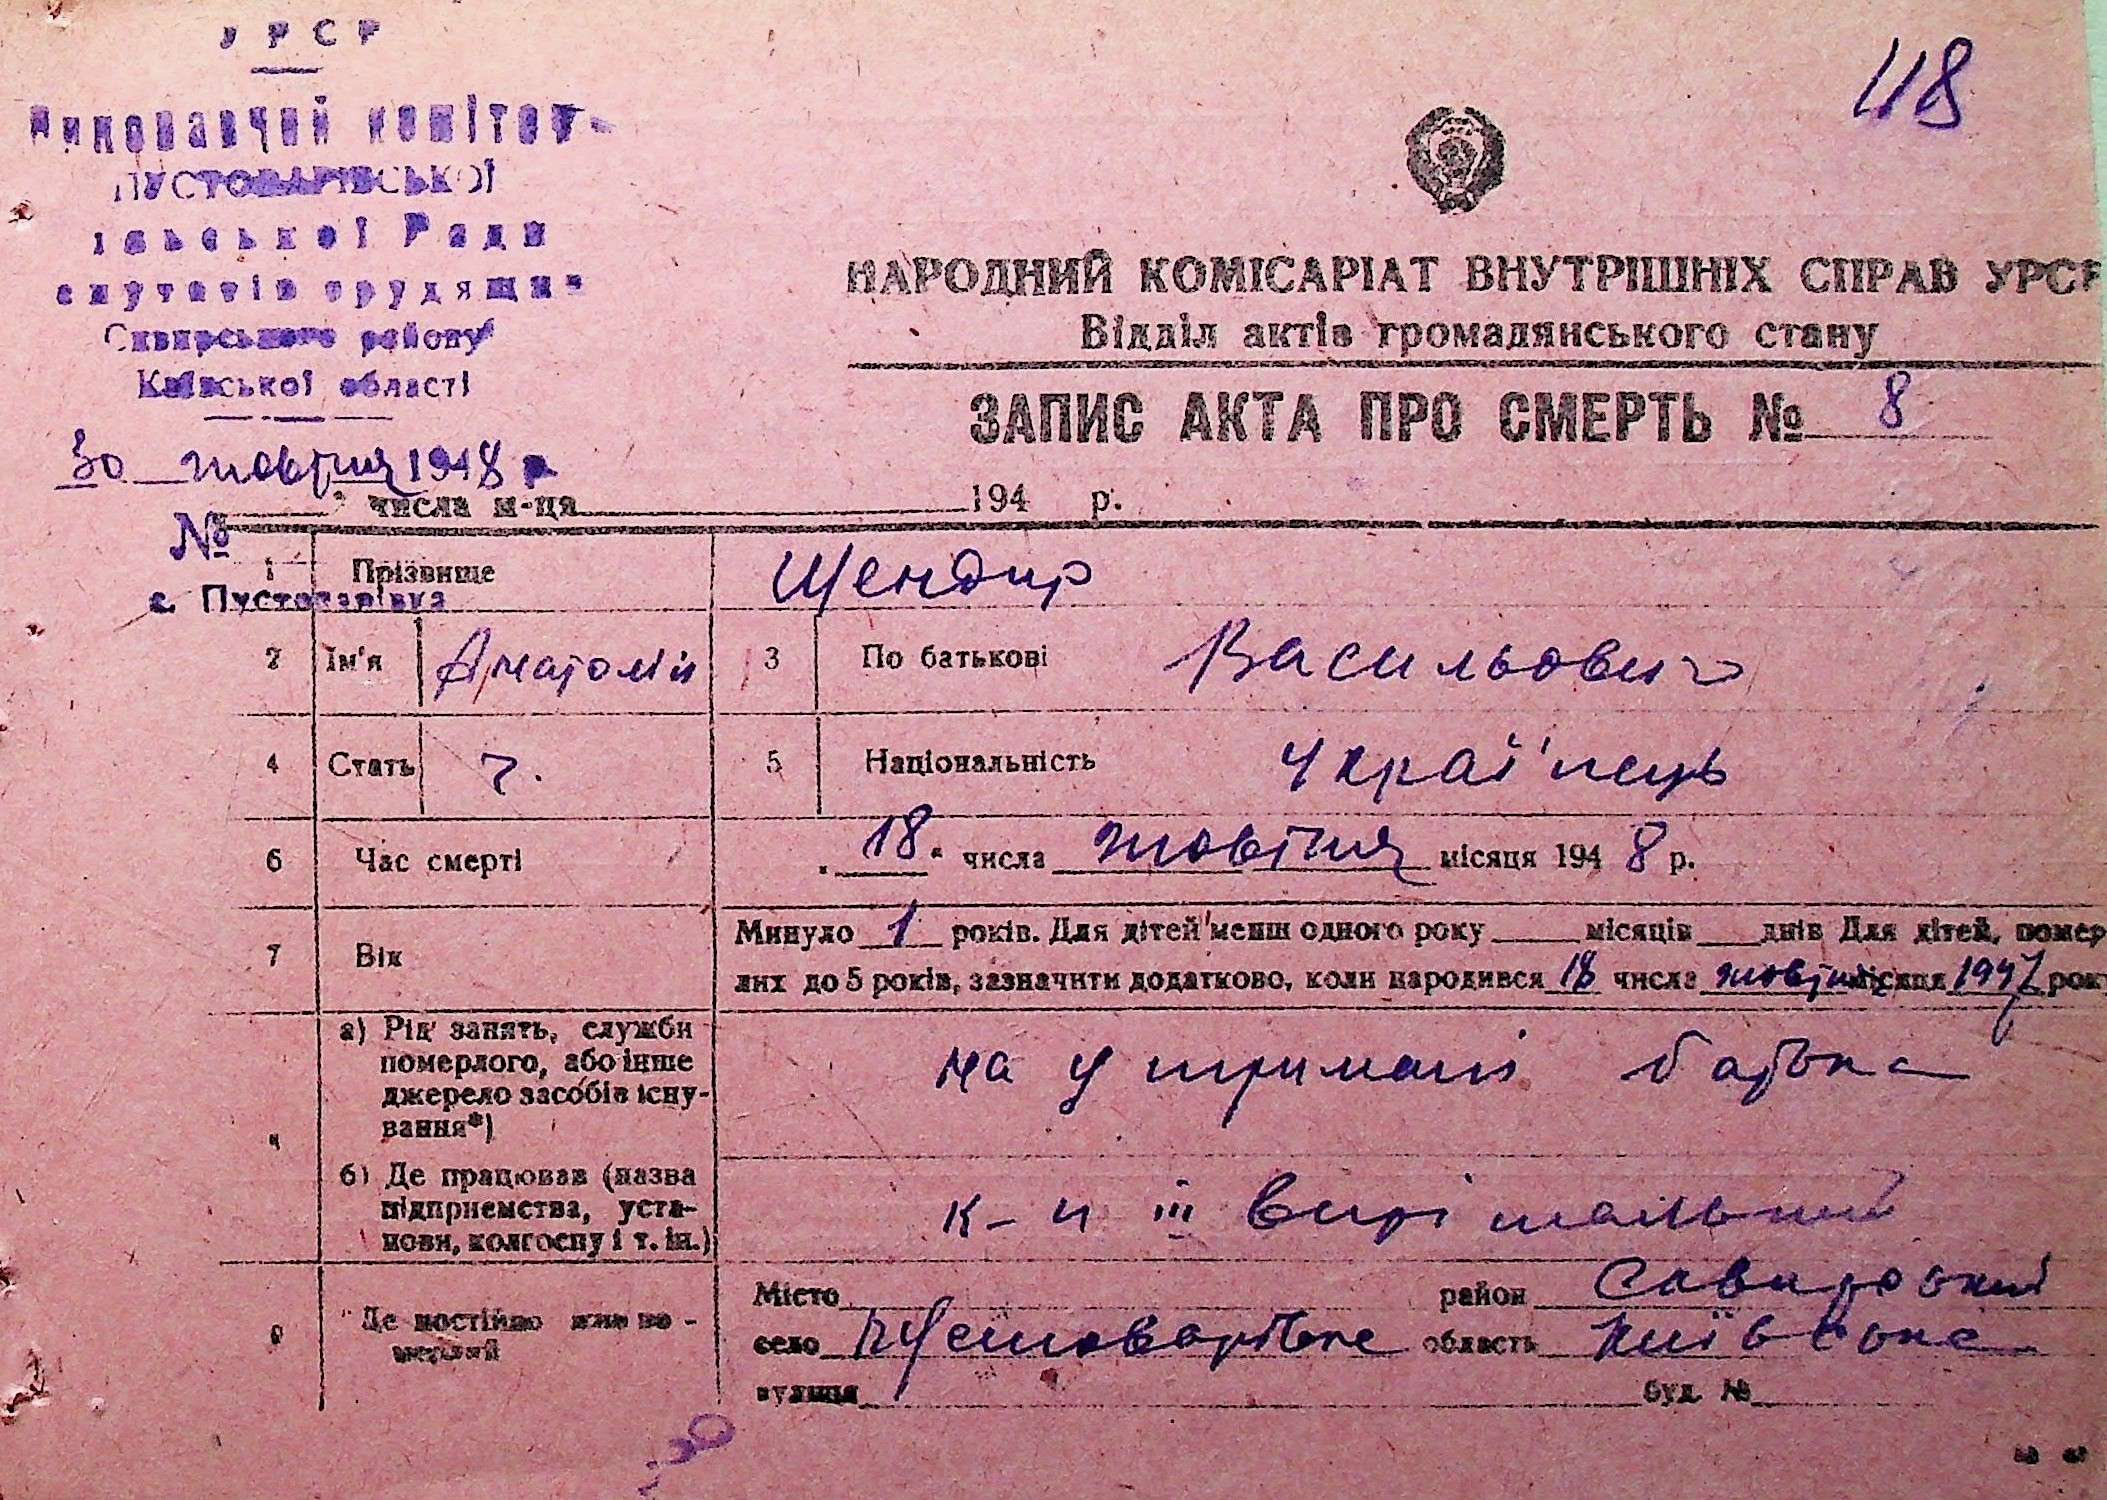 УРСР
Виконавчий комітет
ПУСТОВАРІВСЬКОЇ
ільської Ради
епутатів трудящих
Сквирського району
Київської області
30 жовтня 1948 р
№
с. Пустоварівка
118
НАРОДНИЙ КОМІСАРІАТ ВНУТРІШНІХ СПРАВ УРСР
Відділ актів громадянського стану
ЗАПИС АКТА ПРО СМЕРТЬ № 8
числа м-ця 194 р.
1 Прізвище Щендир
2 Ім'я Анатолій 3 По батькові Васильович
4 Стать ч. 5 Національність Українець
6 Час смерті „18“ числа жовтня місяця 1948 р.
7 Вік Минуло 1 років. Для дітей менш одного року місяців днів Для дітей, помер
лих до 5 років, зазначити додатково, коли народився 18 числа жовтня місяця 1947 рок
а) Рід занять, служби
померлого, або інше
джерело засобів існу-
вання*)
на утримані батька
б) Де працював (назва
підприємства, уста-
нови, колгоспу і т. ін.)
к-п III вирішальний
9 Де постійно жив по-
мерлий
Місто район Сквирський
село Пустоварівка область Київська
вулиця буд. №